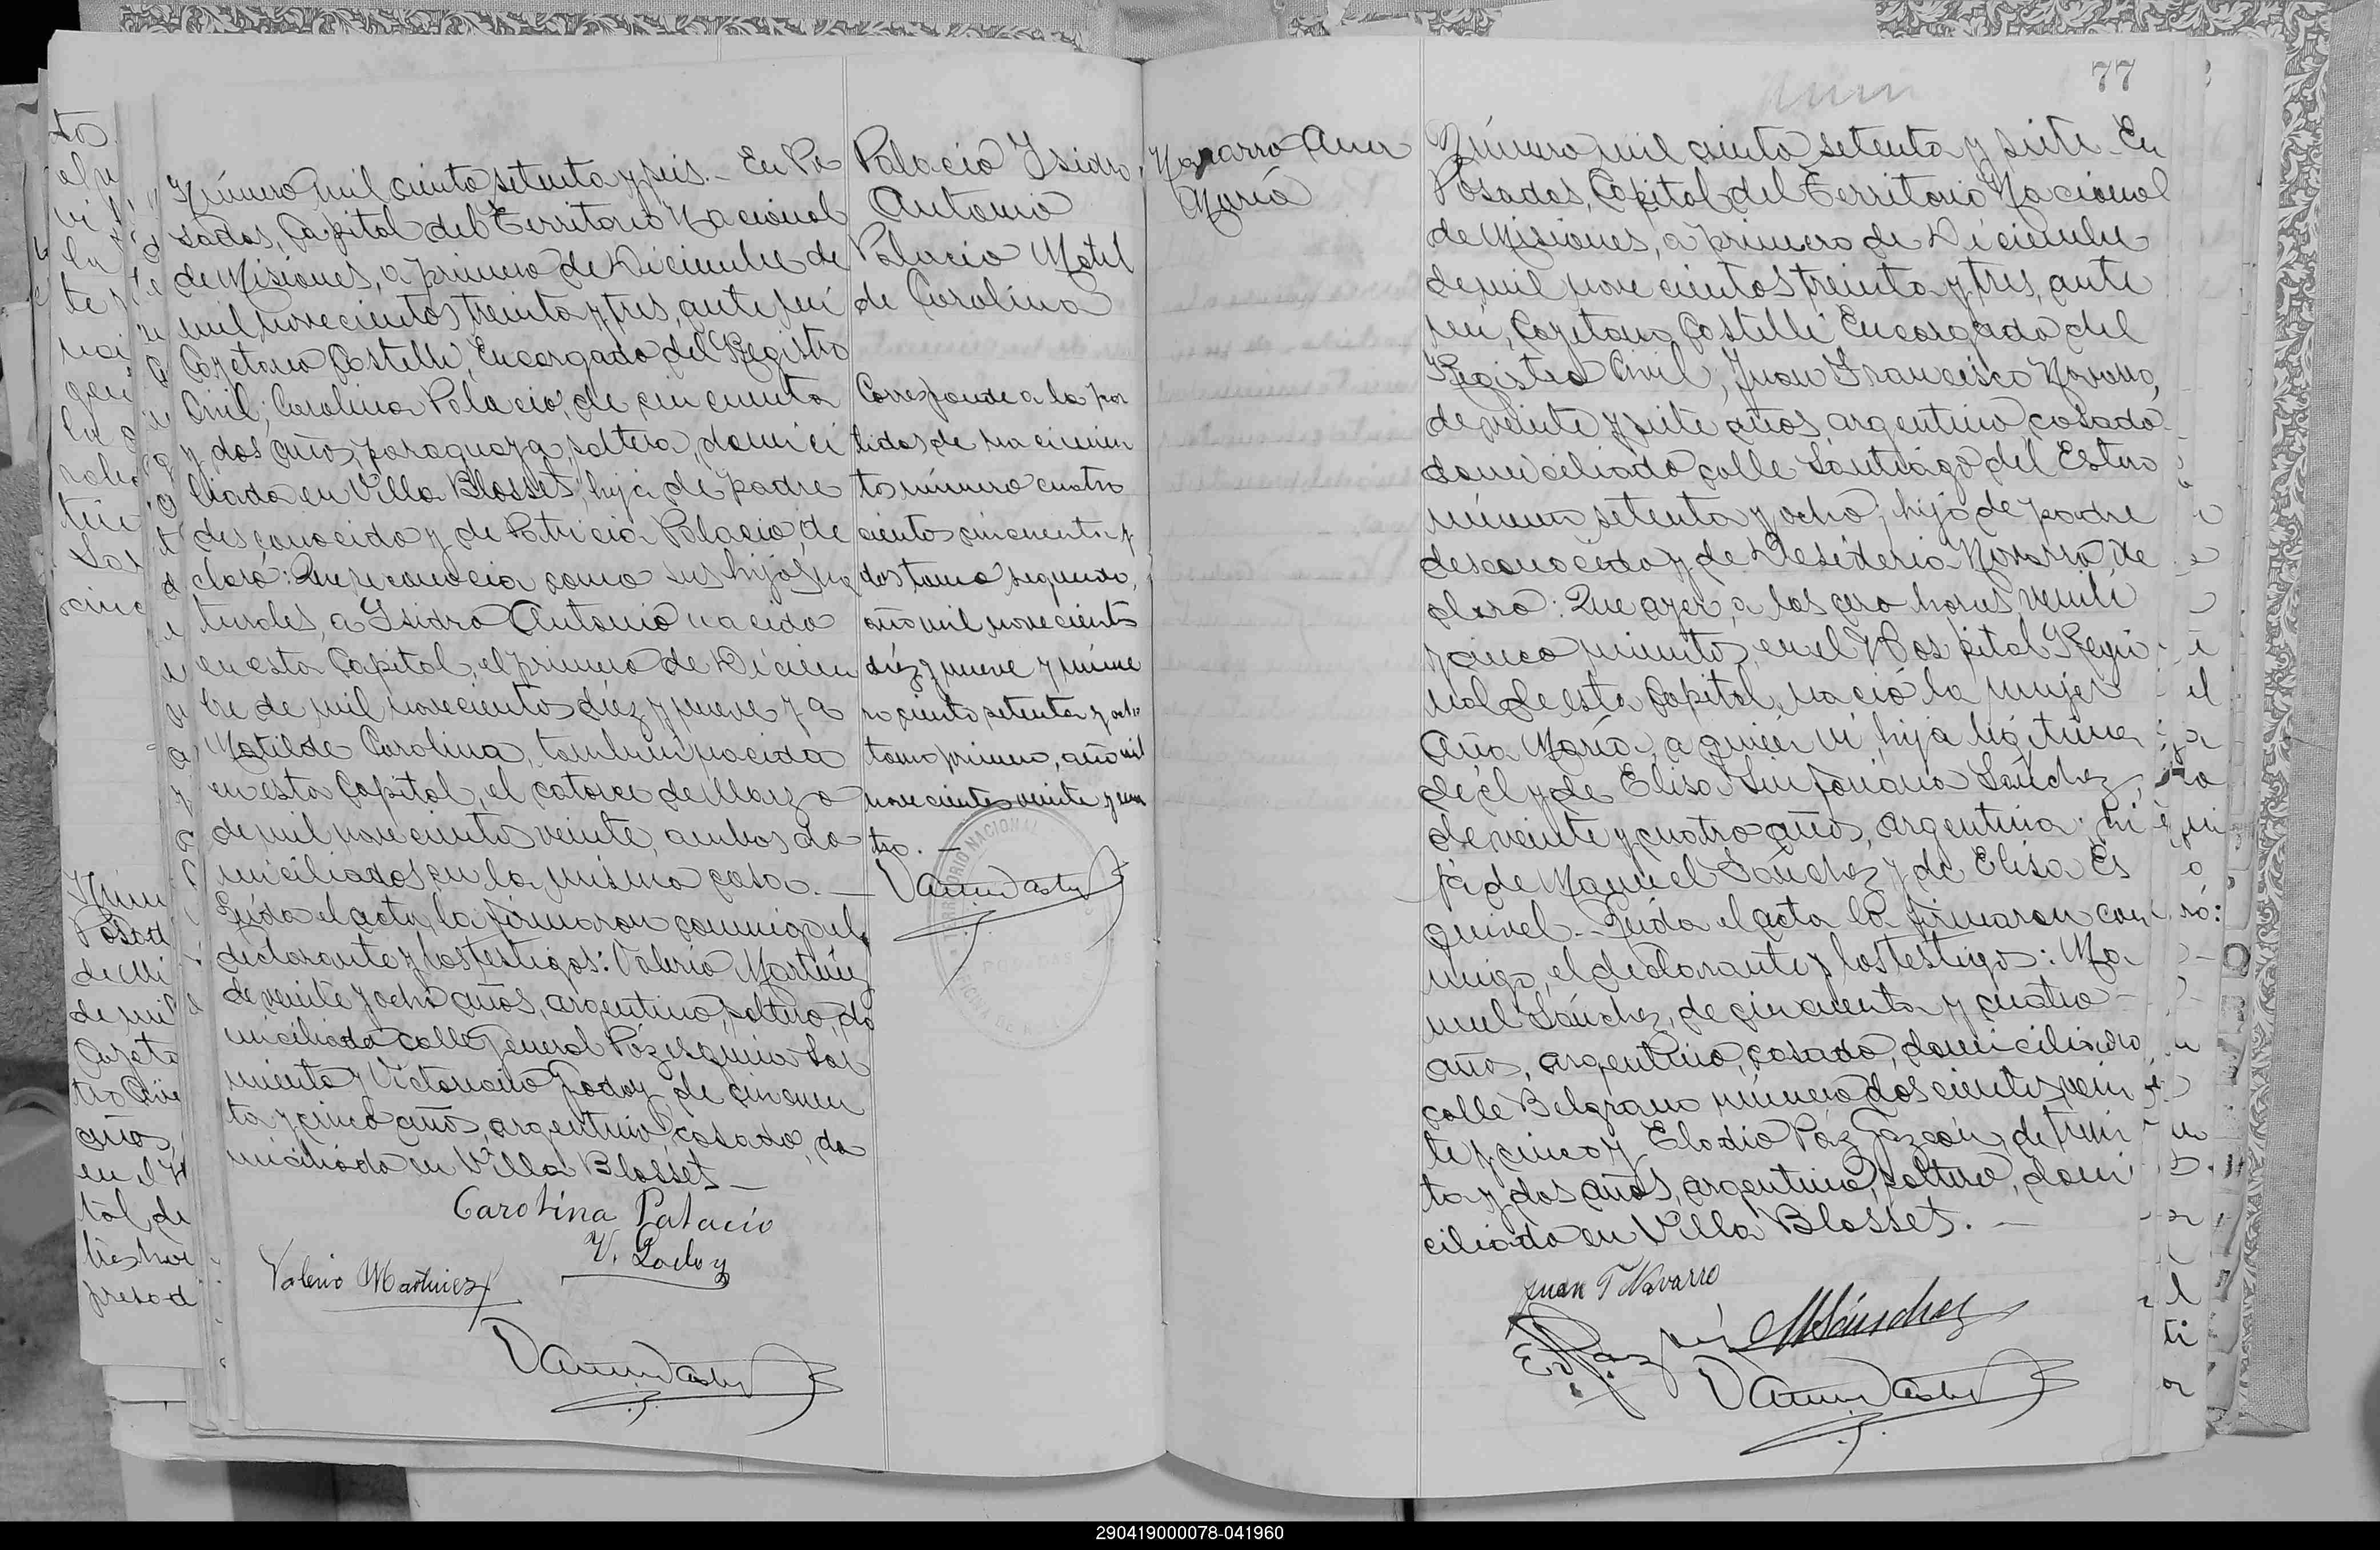 Número mil ciento setenta y seis.- En Po
sadas, Capital del Territorio Nacional
de Misiones, a primero de Diciembre de
mil novecientos treinta y tres, ante mí
Cayetano Castelli, Encargado del Registro
Civil; Carolina Palacio, de cincuenta
y dos años, paraguaya, soltera, domici
liada en Villa Blosset, hija de padre
desconocido y de Patricia Palacio, de
claró: Que reconocia como sus hijos na
turales, a Isidro Antonio nacido
en esta Capital, el primero de Diciem
bre de mil novecientos diez y nueve y a
Matilde Carolina, tambien nacida
en esta Capital, el catorce de Marzo
de mil novecientos veinte, ambos do
miciliados en la misma casa.—
Leída el acta, la firmaron conmigo, el
declarante y los testigos: Valerio Martínez
de veinte y ocho años, argentino, soltero, do
miciliado calle General Páz esquina Sar
miento y Victoriano Godoy, de cincuen
ta y cinco años, argentino, casado, do
miciliado en Villa Blosset.—
Carolina Palacio
V. Godoy
Valerio Martinez
Palacio Isidro
Antonio
Palacio Matil
de Carolina
Corresponde a la par
tidas de nacimien
to número cuatro
cientos cincuenta y
dos tomo segundo,
año mil novecientos
diez y nueve y núme
ro ciento setenta y ocho
tomo primero, año mil
novecientos veinte y cua
tro.—
TERRITORIO NACIONAL
POSADAS
OFICINA DE
77
Navarro Ana
María
Número mil ciento setenta y siete. En
Posadas, Capital del Territorio Nacional
de Misiones, a primero de Diciembre
de mil novecientos treinta y tres, ante
mí, Cayetano Castelli Encargado del
Registro Civil; Juan Francisco Navarro,
de veinte y siete años, argentino, casado
domiciliado calle Santiago del Estero
número setenta y ocho, hijo de padre
desconocido y de Desideria Navarro, de
claró: Que ayer, a las cero horas, veinte
y cinco minutos, en el Hospital Regio
nal de esta Capital, nació la mujer
Ana María, a quien ví, hija legítima
de él y de Elisa Sinforiana Sánchez,
de veinte y cuatro años, argentina, hi
ja de Manuel Sánchez y de Elisa Es
quivel.- Leída el acta la firmaron con
migo, el declarante y los testigos: Ma
nuel Sánchez, de cincuenta y cuatro
años, argentino, casado, domiciliado
calle Belgrano número doscientos vein
te y cinco y Elodio Páz Gazcón, de trein
ta y dos años, argentino, soltero, domi
ciliado en Villa Blosset.—
Juan F Navarro
MSánchez
290419000078-041960